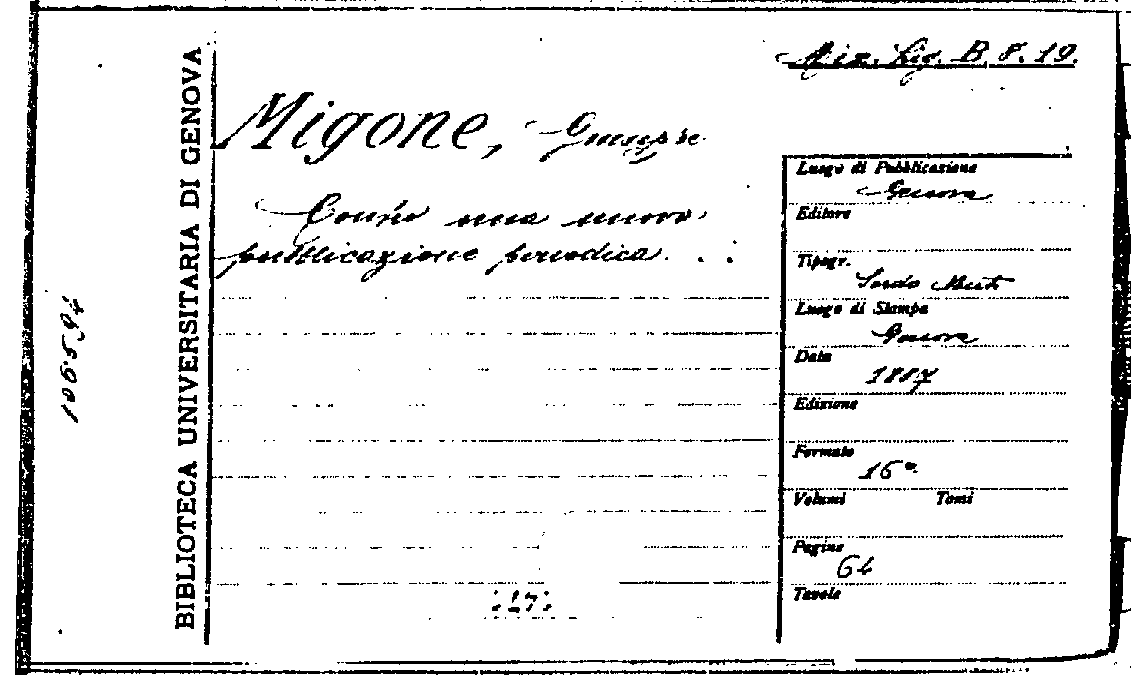 Mix. Lig. B. 8. 19.
Migone, Giuseppe
Contro una nuova
pubblicazione periodica. . .
BIBLIOTECA UNIVERSITARIA DI GENOVA
Luogo di Pubblicazione
Genova
Editore
Tipogr.
Sordo Muti
Luogo di Stampa
Genova
Data
Edizione
Formato
16°
Volumi Tomi
Pagine
64
Tavole